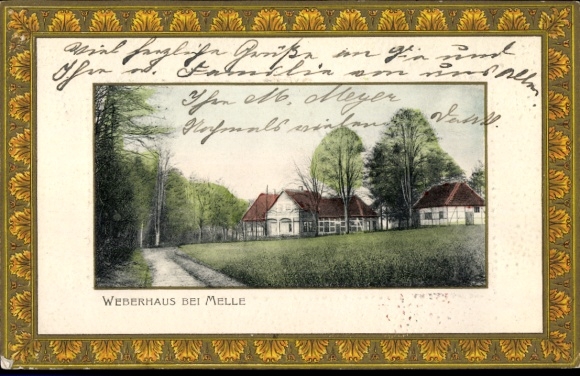 Viel herzliche Grüße an Sie und
Ihre w. Familie von uns allen
Ihre M. Meyer
Nochmals vielen Dank.
WEBERHAUS BEI MELLE